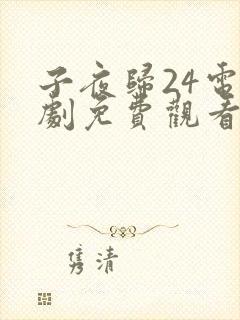 子夜歸24電
劇免費觀看
隽清